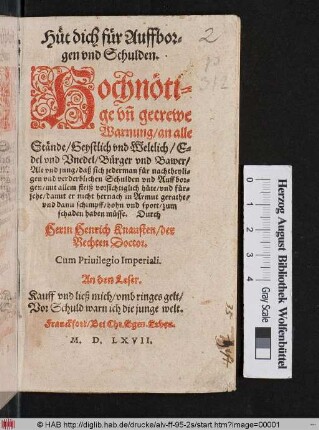 Hüt dich für Auffbor-
gen vnd Schulden.
2
Hochnöti-
ge vñ getrewe
Warnung/an alle
Stände/Geystlich vnd Weltlich/E-
del vnd Vnedel/Bürger vnd Bawer/
Alt vnd jung/daß sich jederman für nachtheyli-
gen vnd verderblichen Schulden vnd Auff bor-
gen/mit allem fleiß vorsichtiglich hüte/vnd für-
sehe/damit er nicht hernach in Armut gerathe/
vnd dann schimpff/hohn vnd spott zum
schaden haben müsse. Durch
Herrn Henrich Knausten/der
Rechten Doctor.
Cum Priuilegio Imperiali.
An den Leser.
Kauff vnd ließ mich/vmb ringes gelt/
Vor Schuld warn ich die junge welt.
Franckfort/Bei Chr. Egen. Erben.
M. D. LXVII.
Herzog August Bibliothek Wolfenbüttel
Gray Scale
© HAB http://diglib.hab.de/drucke/alv-ff-95-2s/start.htm?image=00001